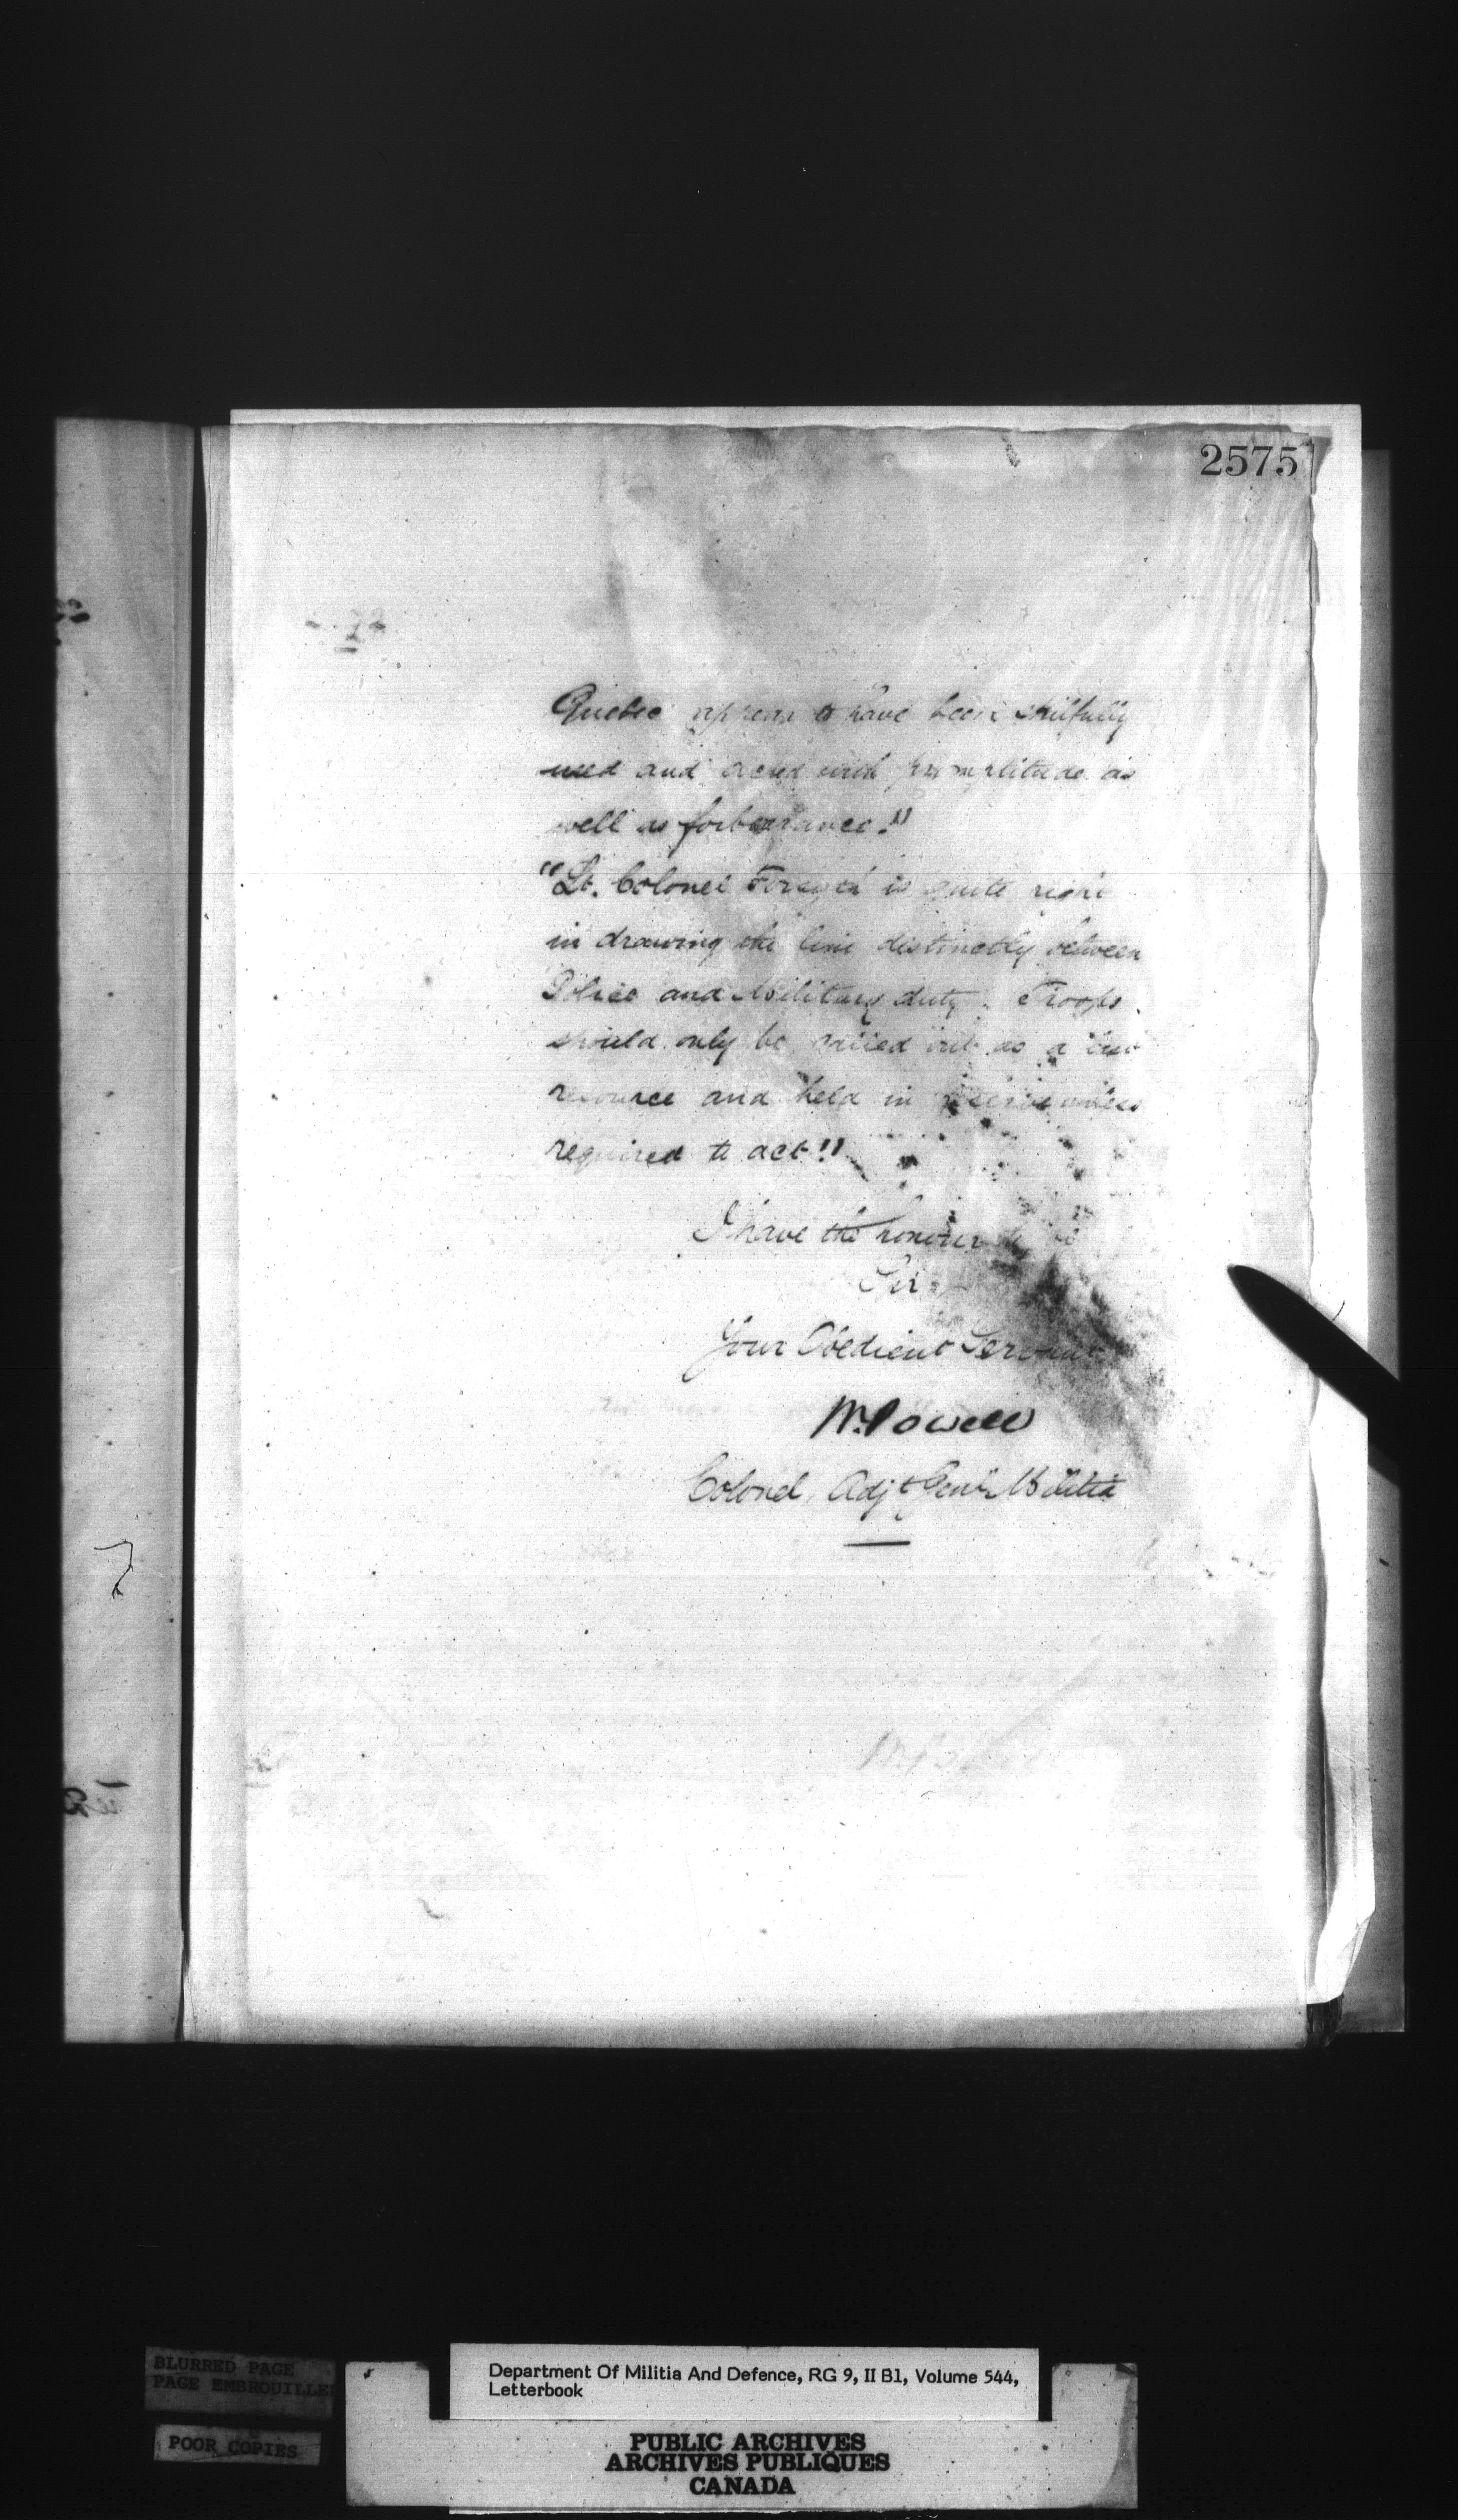 2575
Quebec appear to have been skilfully
used and acted with promptitude as
well as forbearance."
"Lt. Colonel is quite right
in drawing the line distinctly between
Police and Military duty. Troops
should only be called out as a last
resource and held in reserve unless
required to act"
I have the honour to be
Sir,
Your Obedient Servant
W. Powell
Colonel, Adjt Genl Militia
BLURRED PAGE
PAGE EMBROUILLEE
POOR COPIES
Department Of Militia And Defence, RG 9, II B1, Volume 544,
Letterbook
PUBLIC ARCHIVES
ARCHIVES PUBLIQUES
CANADA